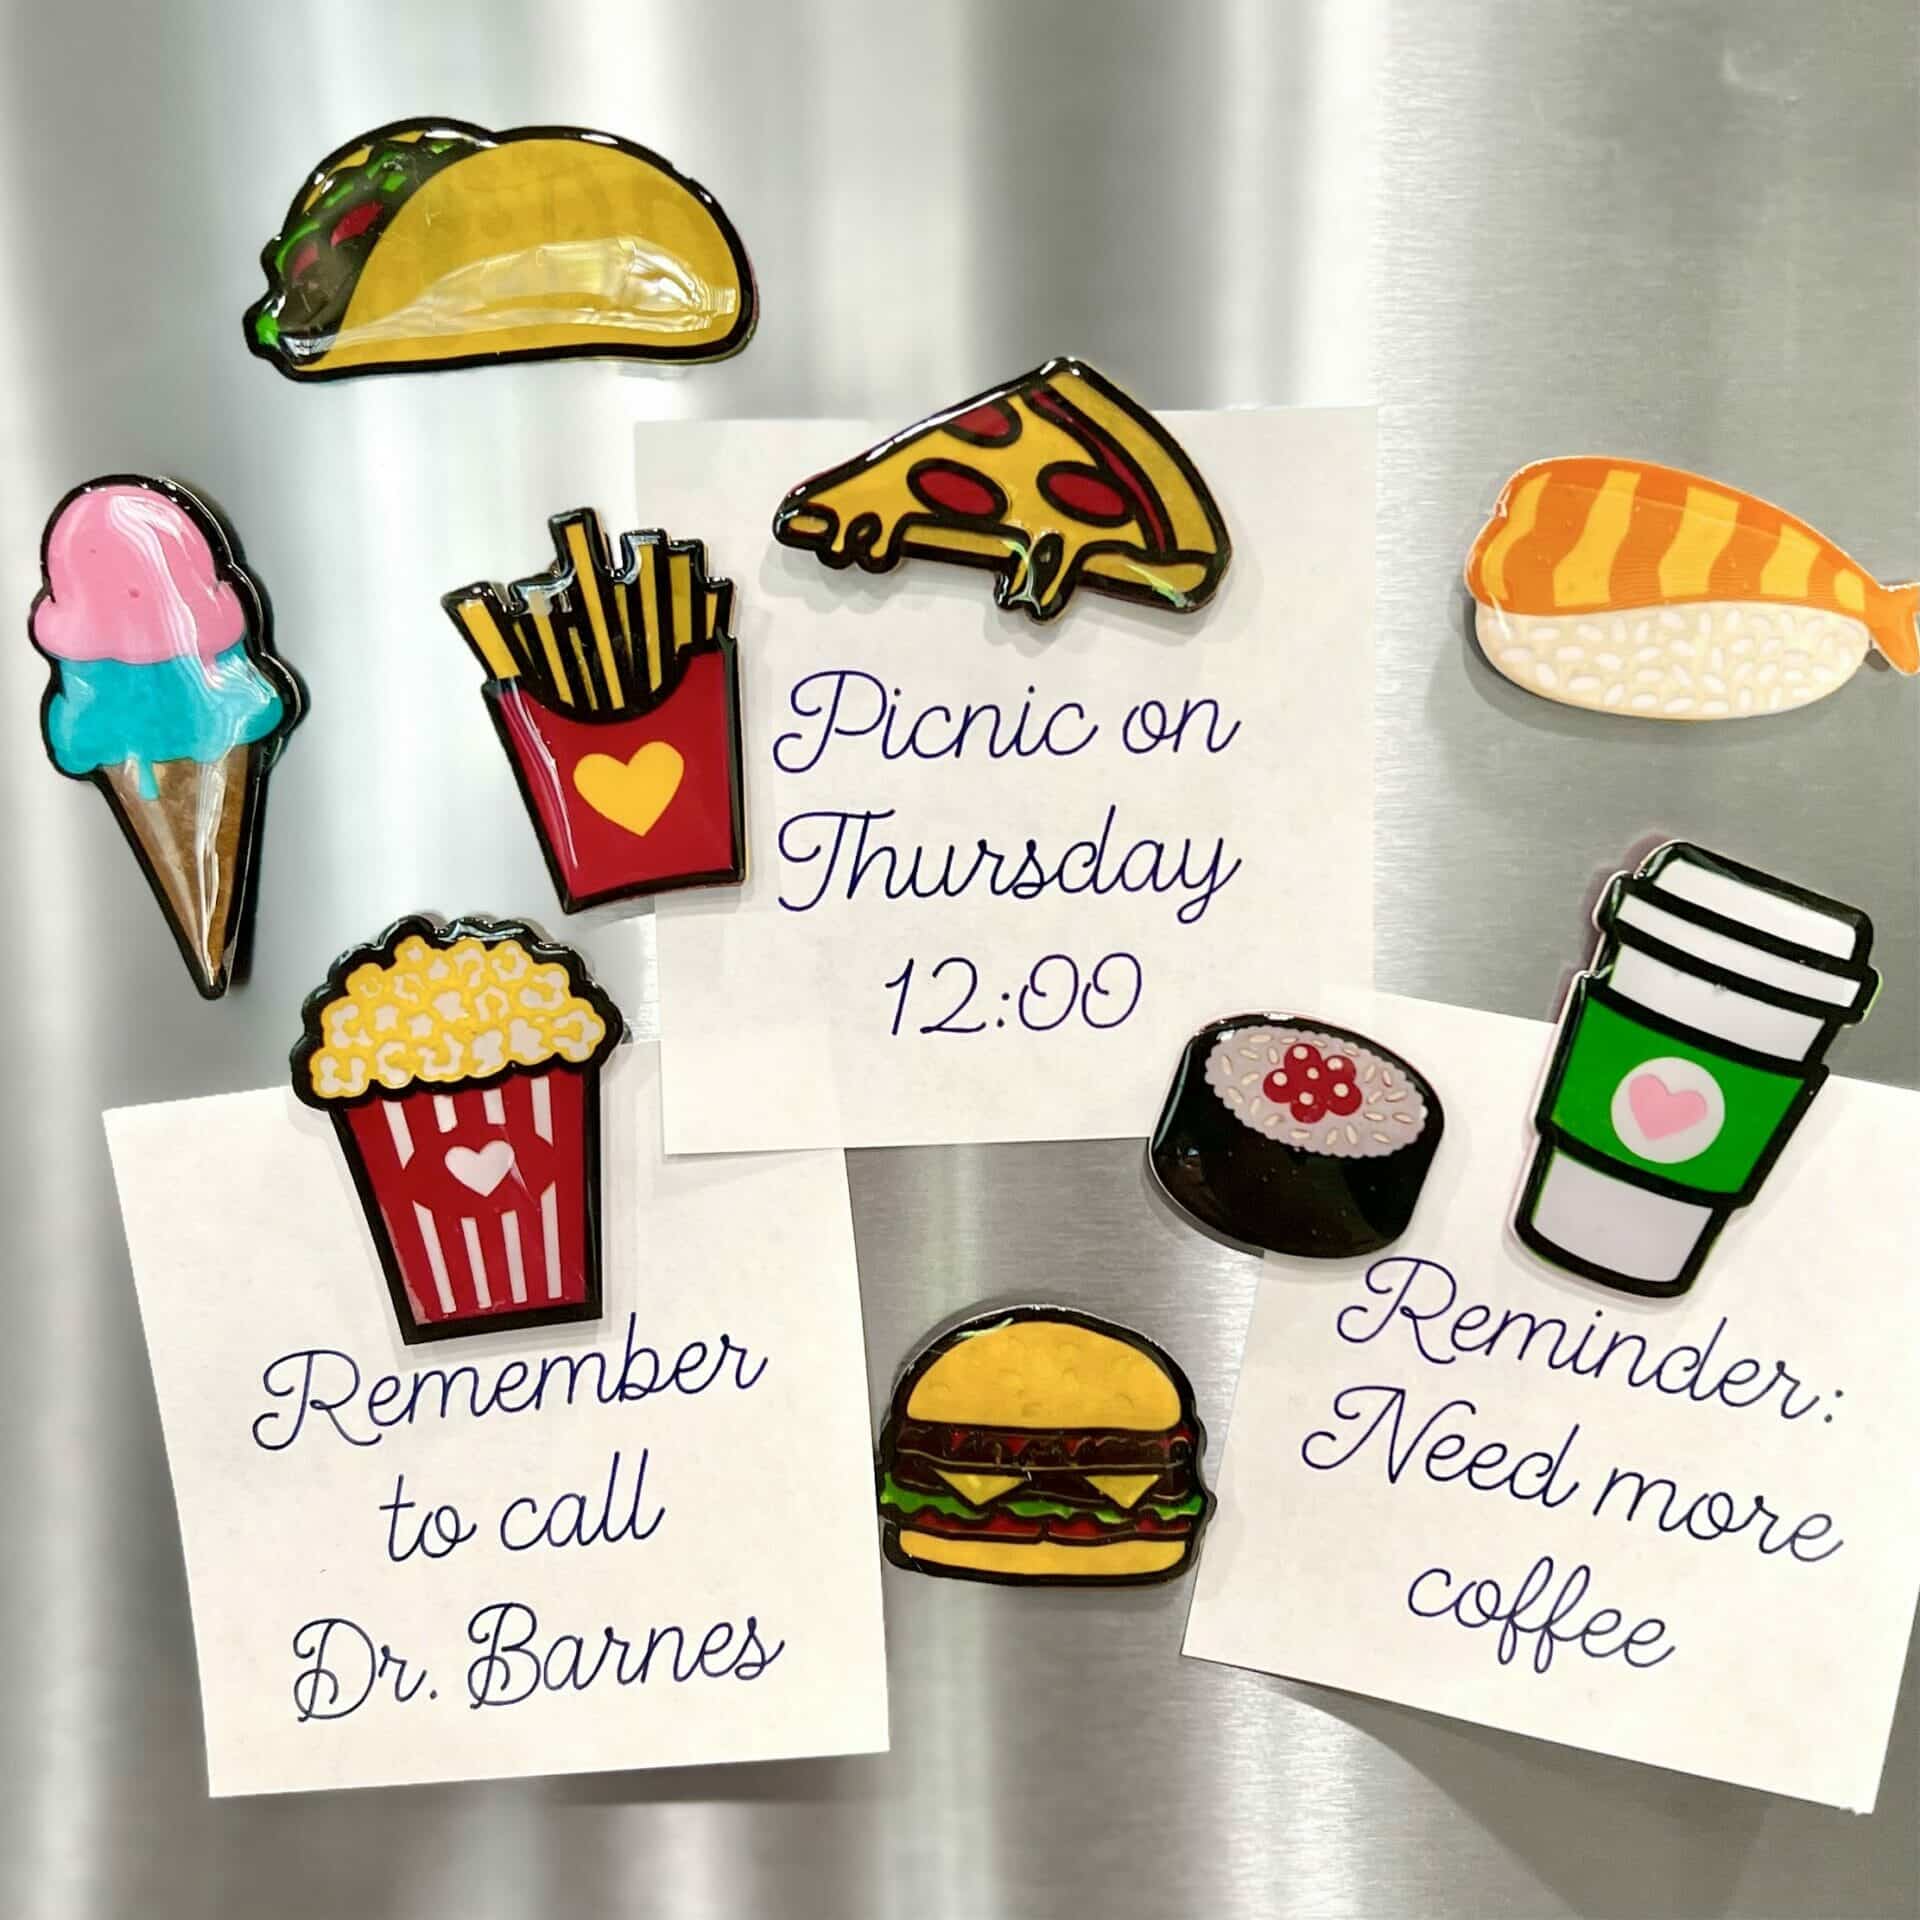 Picnic on
Thursday
12:00
Remember
to call
Dr. Barnes
Reminder:
Need more
coffee